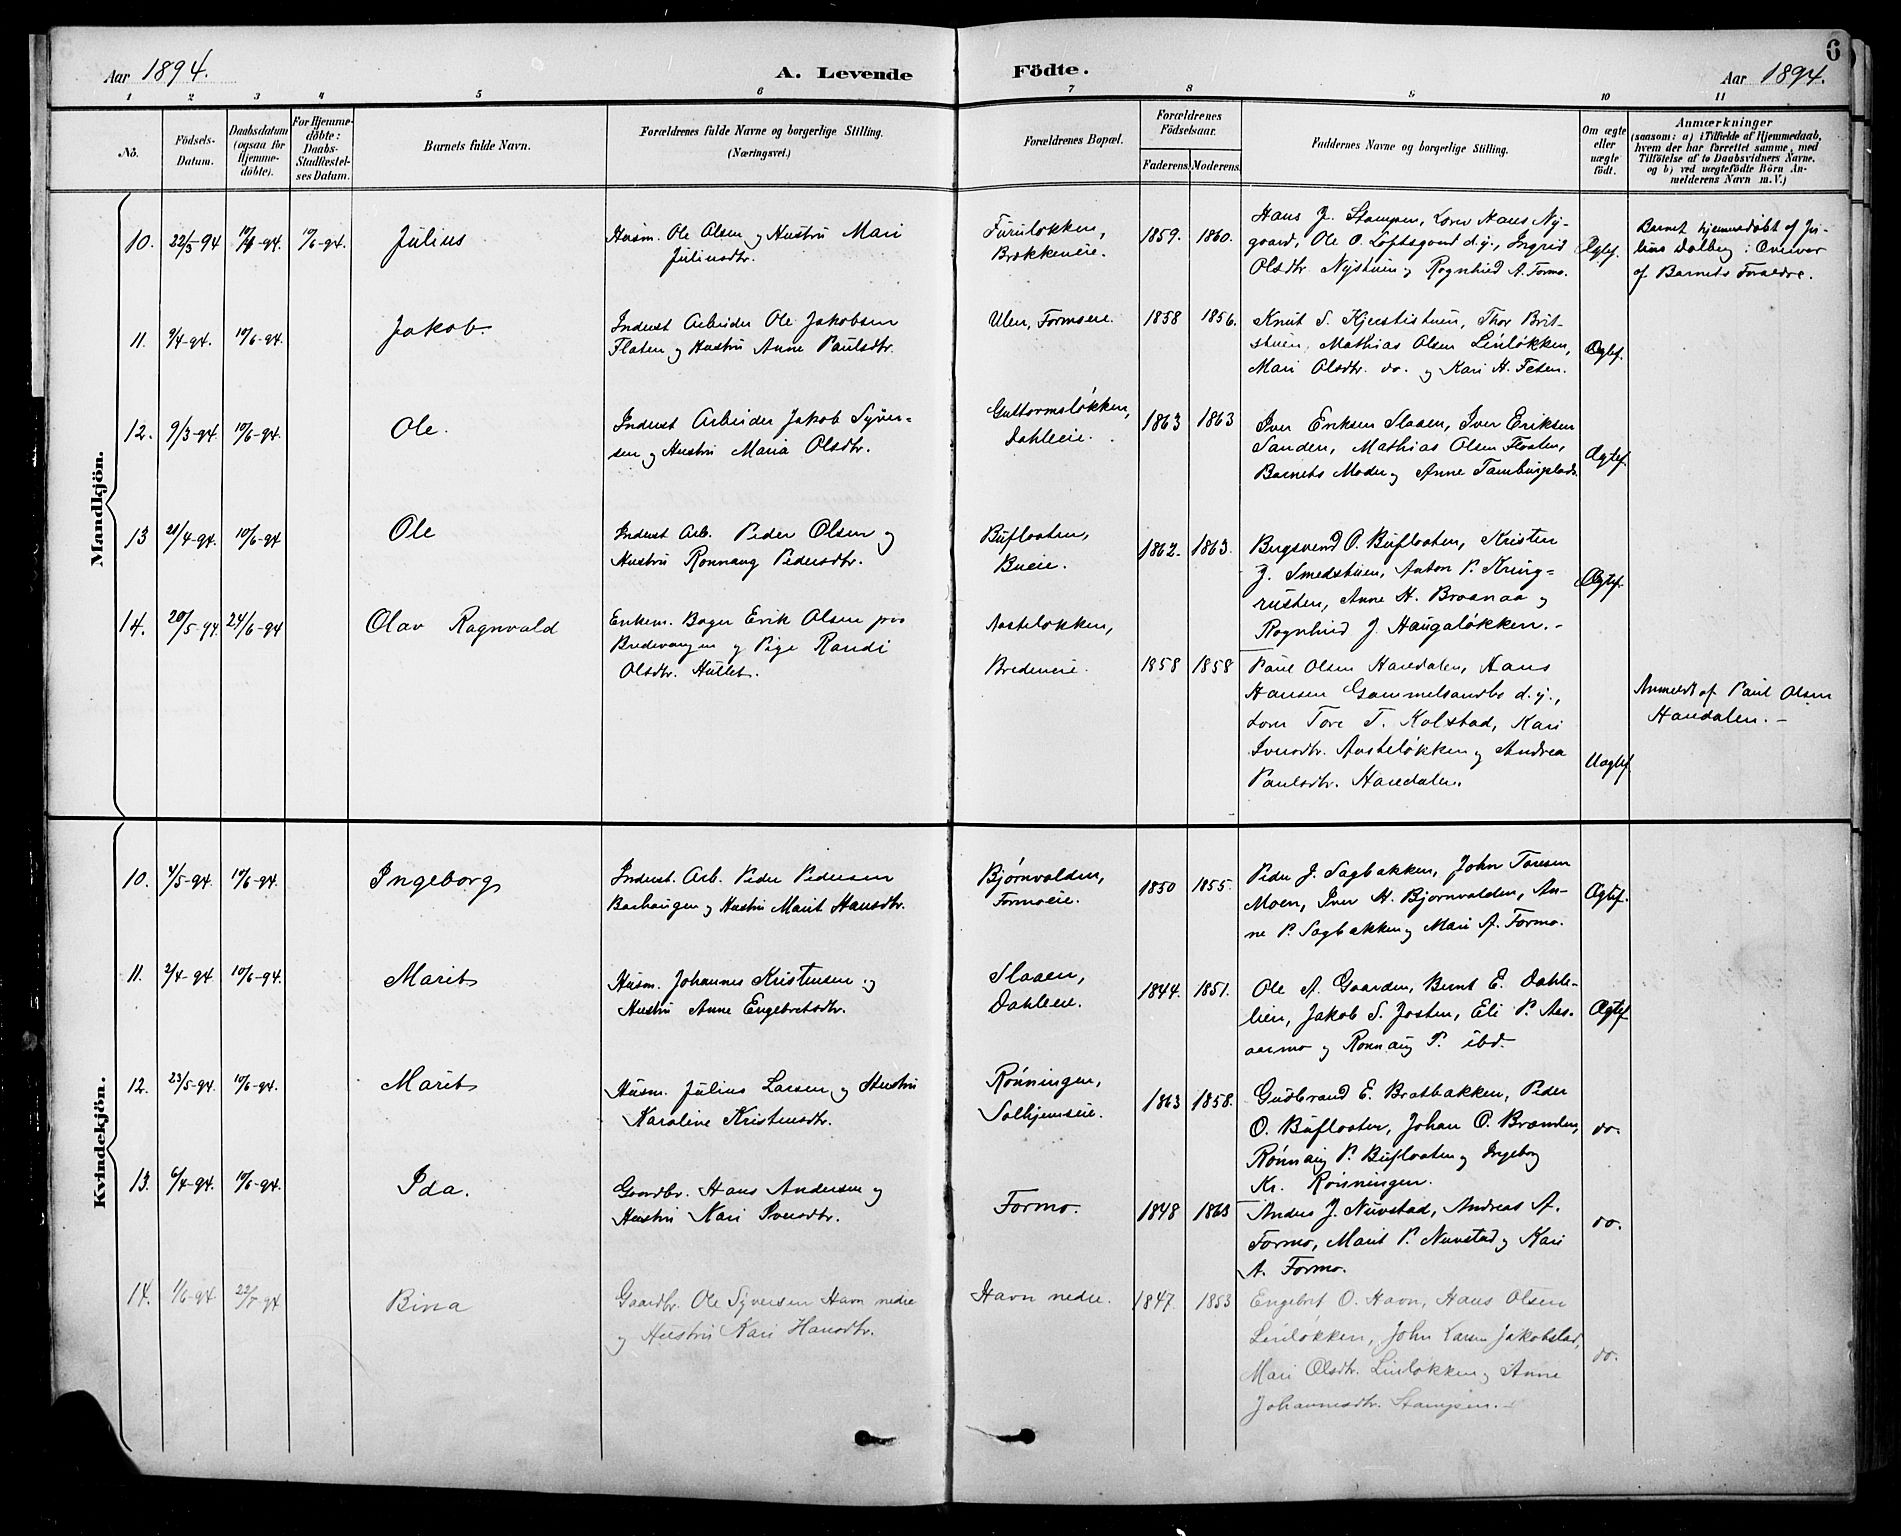 6
Aar 1894. A. Levende Födte. Aar 1894.
1 2 3 4 5 6 7 8 9 10 11
No.
Födsels-
Datum.
Daabsdatum
(ogsaa for
Hjemme-
døbte).
For Hjemme-
døbte:
Daabs-
Stadfæstel-
ses Datum.
Barnets fulde Navn.
Forældrenes fulde Navne og borgerlige Stilling.
(Næringsvei.)
Forældrenes Bopæl.
Forældrenes
Födselsaar.
Faderens. Moderens.
Faddernes Navne og borgerlige Stilling.
Om ægte
eller
uægte
födt.
Anmærkninger
(saasom: a) i Tilfælde af Hjemmedaab,
hvem der har forrettet samme, med
Tilföielse af to Daabsvidners Navne,
og b) ved uægtefödte Börn An-
melderens Navn m.V.)
Mandkjön.
10. 22/5-94 10/6-94. Julius
Husm. Ole Olsen og Hustru Mari
Juliusdtr.
Furuløkken,
Brækkeneie.
1859. 1860.
Hans J. Stampen, Lars Hans Ny-
gaard, Ole O. Loftsgaard d.y., Ingrid
Olsdtr Nystuen og Rognhild A. Formo.
Ægtef.
Barnet hjemmedøbt af Ju-
lius Dalberg i Overvær
af Barnets Forældre.
11. 9/4-94. 10/6-94. Jakob.
Inderst Arbeider Ole Jakobsen
Flaten og Hustru Anne Paulsdtr.
Ulen, Formoeie.
1858 1856.
Knut S. Kjerstistuen, Thor Brit-
stuen, Mathias Olsen Linløkken,
Mari Olsdtr. do. og Kari H. Feten.
Ægtef.
12. 9/3-94. 10/6-94. Ole.
Inderst Arbeider Jakob Syver-
sen og Hustru Maria Olsdtr.
Guttormsløkken,
Dahleeie.
1863 1863
Iver Eriksen Slaaen, Iver Eriksen
Sanden, Mathias Olsen Floaten,
Barnets Moder og Anne Tamburplads.
Ægtef.
13 21/4-94. 10/6-94 Ole
Inderst Arb. Peder Olsen og
Hustru Rønnaug Pedersdtr.
Bufloaten,
Bueie.
1862. 1863.
Bergsvend O. Bufloaten, Kristen
J. Smedstuen, Anton P. Kring-
rusten, Anne H. Braanaa og
Rognhild J. Haugaløkken.-
Ægtef.
14. 20/5-94. 24/6-94 Olav Ragnvald
Enkem. Bager Erik Olsen paa
Bredevangen og Pige Randi
Olsdtr. Hullet.
Aasteløkken,
Bredeneie.
1858 1858
Paul Olsen Haredalen, Hans
Hansen Gammelsandbo d.y.,
Lars Tore T. Kolstad, Kari
Iversdtr. Aasteløkken og Andrea
Paulsdtr. Haredalen.
Uægtef.
Anmeldt af Paul Olsen
Haredalen.-
Kvindekjön.
10. 4/5-94. 10/6-94. Ingeborg
Inderst. Arb. Peder Pedersen
Bachaugen og Hustru Marit Hansdtr.
Bjørnvolden,
Formoeie.
1850 1855.
Peder J. Sagbakken, John Toresen
Moen, Iver H. Bjørnvolden, An-
ne P. Sagbakken og Mari A. Formo.
Ægtef.
11. 2/4-94 10/6-94. Marit
Husm. Johannes Kristensen og
Hustru Anne Engebretsdtr.
Slaaen,
Dahleeie.
1844. 1851.
Ole A. Gaarden, Bernt E. Dahle-
lien, Jakob S. Josten, Eli P. Aas-
aarmo og Rønnaug P. ibd.
Ægtef.
12. 23/5-94. 10/6-94. Marit
Husm. Julius Larsen og Hustru
Karoline Kristensdtr.
Rønningen,
Solhjemseie.
1863 1858.
Gudbrand E. Bratbakken, Peder
O. Bufloaten, Johan O. Brænden,
Rønnaug P. Bufloaten og Ingeborg
Kr. Rønningen.
do.
13. 6/4-94. 10/6-94. Ida.
Gaardbr. Hans Andersen og
Hustru Kari Iversdtr.
Formo.
1848 1863
Anders J. Nuvstad, Andreas A.
Formo, Marit P. Nuvstad og Kari
A. Formo.
do.
14. 1/6-94 22/7-94 Bina
Gaardbr. Ole Syversen Havn nedre
og Hustru Kari Hansdtr.
Havn nedre.
1847. 1853
Engebret O. Havn, Hans Olsen
Linløkken, John Larsen Jakobstad,
Mari Olsdtr. Linløkken og Anne
Johannesdtr. Stampen.-
do.